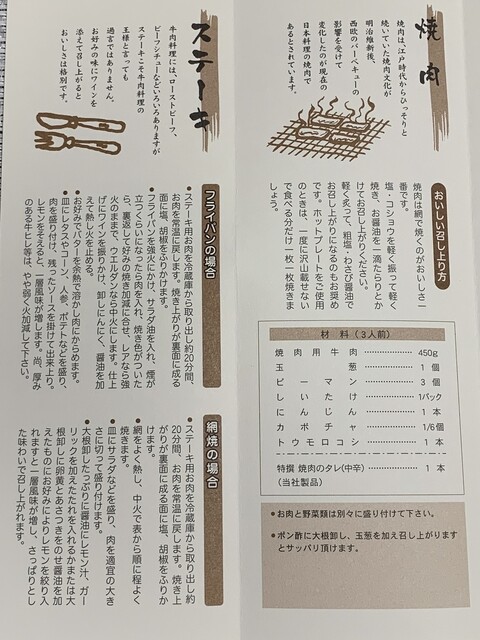 焼肉
焼肉は、江戸時代からひっそりと
続いていた焼肉文化が
明治維新後、
西欧のバーベキューの
影響を受けて
変化したのが現在の
日本料理の焼肉で
あるとされています。
おいしい召し上り方
焼肉は網で焼くのがおいしさ一
番です。
塩・コショウを軽く振って軽く
焼き、お醤油を一滴たらりとか
けてお召し上がりください。
軽く炙って、粗塩・わさび醤油で
お召し上がりになるのもお奨め
です。ホットプレートをご使用
のときは、一度に沢山載せない
で食べる分だけ一枚一枚焼きま
しょう。
材料（3人前）
焼肉用牛肉………………450g
玉葱………………1個
ピーマン………………3個
しいたけ………………1パック
にんじん………………1本
カボチャ………………1/6個
トウモロコシ………………1本
特撰 焼肉のタレ(中辛)………………1本
（当社製品）
●お肉と野菜類は別々に盛り付けて下さい。
●ポン酢に大根卸し、玉葱を加え召し上がります
とサッパリ頂けます。
ステーキ
牛肉料理には、ローストビーフ、
ビーフシチューなどいろいろありますが
ステーキこそ牛肉料理の
王様と言っても
過言ではありません。
お好みの味にワインを
添えて召し上がると
おいしさは格別です。
フライパンの場合
●ステーキ用お肉を冷蔵庫から取り出し約20分間、
お肉を常温に戻します。焼き上がりが裏面に成る
面に塩、胡椒をふりかけます。
●フライパンを強火にかけ、サラダ油を入れ、煙が
立つくらいになったら肉を入れ、焼き色がついた
ら、裏返して好みの焼き加減に合せ、レアなら強
火のままで、ウエルダンなら中火にします。仕上
げにワインを振りかけ、卸しにんにく、醤油を加
えて熱し火を止める。
●お好みでバターを余熱で溶かし肉にからめます。
●皿にレタスやコーン、人参、ポテトなどを盛り、
肉を盛り付け、残ったソースを掛けて出来上り。
レモンを添えると、一層風味が増します。尚、厚み
のある牛ヒレ等は、やや弱く火加減して下さい。
網焼の場合
●ステーキ用お肉を冷蔵庫から取り出し約
20分間、お肉を常温に戻します。焼き上
がりが裏面に成る面に塩、胡椒をふりか
けます。
●網をよく熱し、中火で表から順に程よく
焼きます。
●皿にサラダなどを盛り、肉を適宜の大き
さに切って盛り付けます。
●大根卸したっぷりに醤油にレモン汁、ガー
リックを加えたたれを入れるかまたは大
根卸しに卵黄とあさつきをのせ醤油を加
えたものにお好みによりレモンを絞り入
れますと一層風味が増し、さっぱりとし
た味わいで召し上がれます。